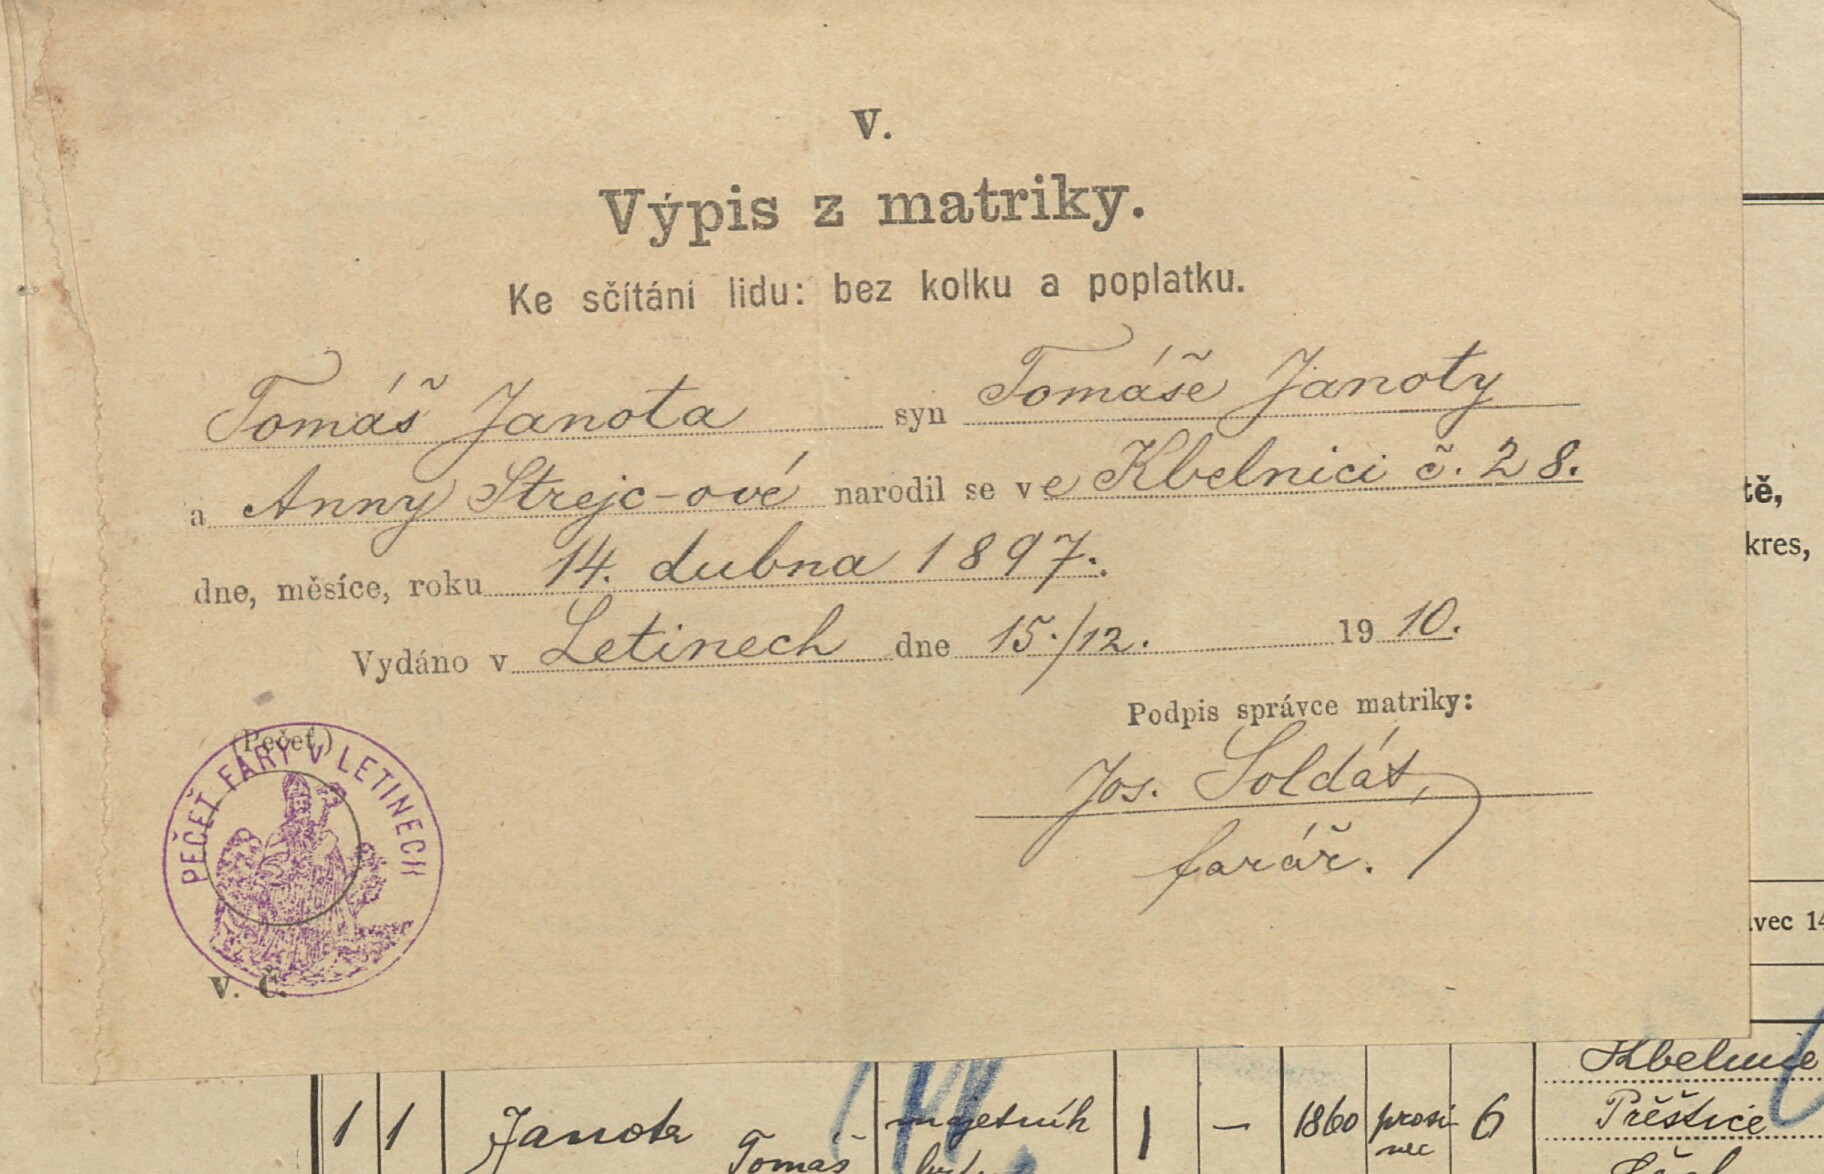 V.
Výpis z matriky.
Ke sčítání lidu: bez kolku a poplatku.
Tomáš Janota syn Tomáše Janoty
a Anny Strejc-ové narodil se ve Kbelnici č. 28.
dne, měsíce, roku 14. dubna 1897.
Vydáno v Letinech dne 15./12. 1910.
Podpis správce matriky:
(Pečeť.)
PEČEŤ FARY V LETINECH
Jos. Soldát,
farář.
V. Č.
tě,
kres,
vec 14
Kbelnice
1 1 Janota Tomáš majetník 1 – 1860 prosinec 6 Přeštice